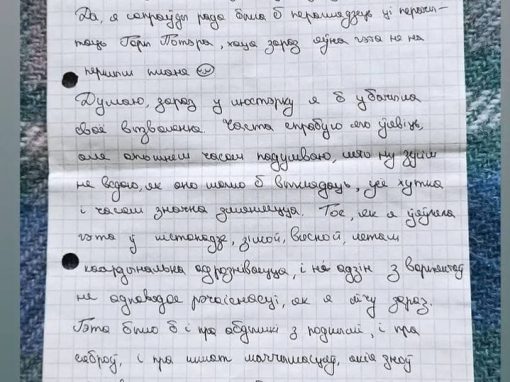 Да, я сапраўды рада была б пераглядзець ці перачы-
таць Гары Потэра, хаця зараз яўна гэта не на
першым плане
Думаю, зараз у люстэрку я б убачыла
сваё вызваленне. Часта спрабую яго ўявіць,
але апошнім часам падумваю, што ну зусім
не ведаю, як яно магло б выглядаць, усе хутка
і часам значна змяняецца. Тое, як я ўяўляла
гэта ў лістападзе, зімой, вясной, летам
кардынальна адрозніваецца, і не адзін з варыянтаў
не адпавядае рэчаіснасці, як я лічу зараз.
Гэта было б і пра абдымкі з роднымі, і пра
сяброў, і пра шмат магчымасцяў, якія зноў